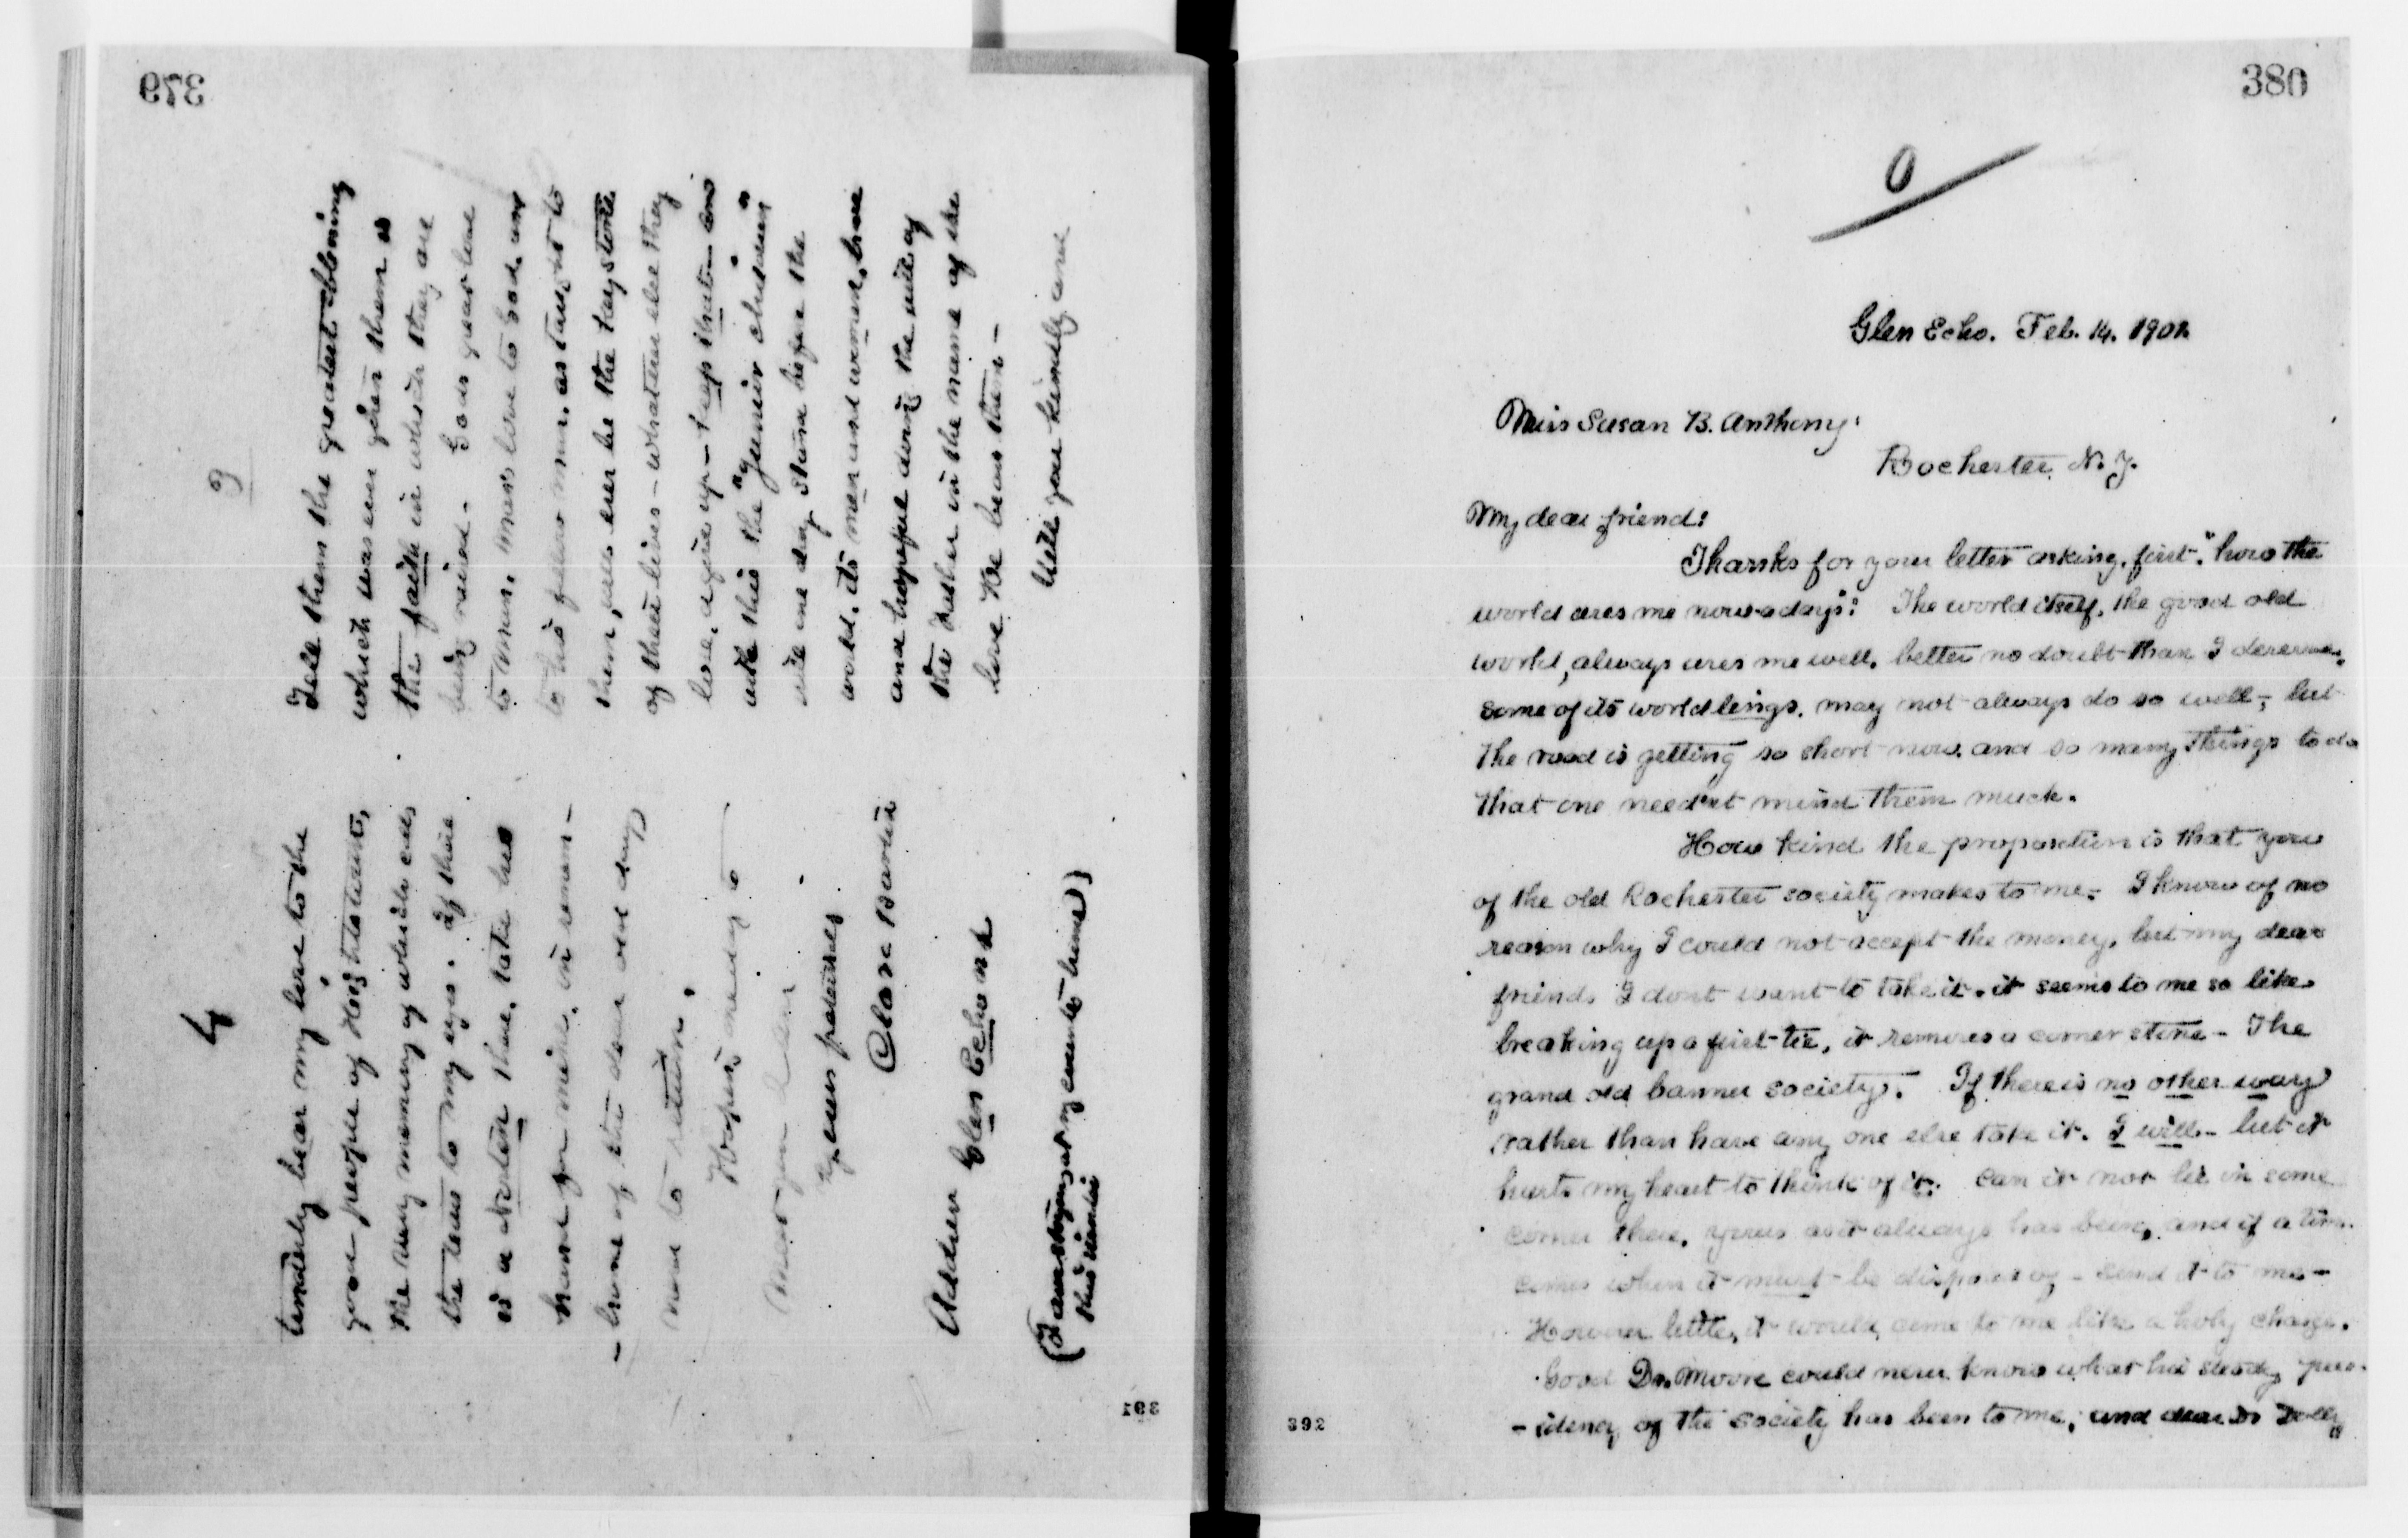 379
3
Tell them the greatest blessing
which was ever given them is
the faith in which they are
being raised. God's great love
to man, man's love to God, and
to his fellow man, as taught to
them, will ever be the keystone
of their lives - whatever else they
lose, or give up - keep that - and
with this the "Junior
will one day stand before the
world, its men and women, brave
and hopeful doing the will of
the Father in the name of the
love He bears them -
Will you kindly and
4
tenderly bear my love to the
good people of Hightstown,
the very memory of which calls
the tears to my eyes. If there
is a Norton there, take his
hand for mine, in remem-
- brance of the dear old days
now to return.
Hoping
yours faithfully
Clara Barton
Address Glen Echo Md
391
380
0
Glen Echo. Feb. 14. 1902
Miss Susan B. Anthony.
Rochester, N. Y.
My dear friend:
Thanks for your letter asking, first, "how the
world uses me now-a-days": The world itself, the good old
world, always uses me well, better no doubt than I deserve,
some of its worldlings, may not always do so well; but
the road is getting so short now, and so many things to do
that one needn't mind them much.
How kind the proposition is that you
of the old Rochester society makes to me. I know of no
reason why I could not accept the money, but my dear
friends I dont want to take it, it seems to me so like
breaking up a first tie, it removes a corner stone - The
grand old banner society. If there is no other way
rather than have any one else take it. I will - but it
hurts my heart to think of it. Can it not lie in some
corner there, yours as it always has been, and if a time
comes when it must be disposed of - send it to me -
However little, it would come to me like a holy charge.
Good Dr. Moore could never know what his steady pres-
- idency of the society has been to me, and dear Dr Dolly
392